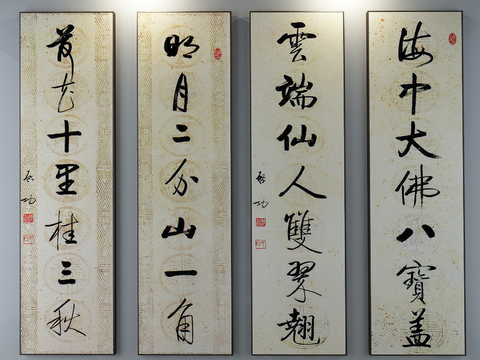 海中大佛八寶盖
雲端仙人雙翠翹
启功
明月二分山一角
荷花十里桂三秋
启功